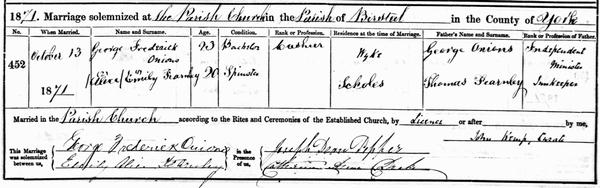 1871. Marriage solemnized at the Parish Church in the Parish of Birstal in the County of York
No. When Married. Name and Surname. Age. Condition. Rank or Profession. Residence at the time of Marriage. Father's Name and Surname. Rank or Profession of Father.
452 October 13 1871 George Frederick Onions 23 Bachelor Cashier Wyke George Onions Independent Minister
Emily Fearnley 20 Spinster Scholes Thomas Fearnley Innkeeper
Married in the Parish Church according to the Rites and Ceremonies of the Established Church, by Licence or after by me,
John Kemp, Curate
This Marriage was solemnized between us, George Frederick Onions
Emily Alice Fearnley
in the Presence of us, Joseph
Catherine Anne